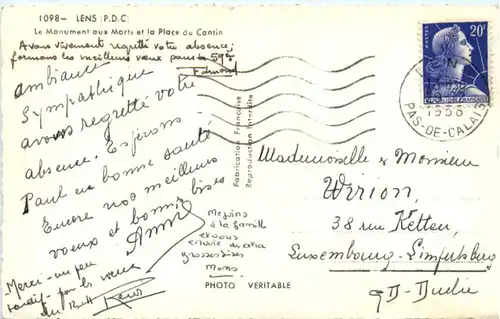 1098- LENS (P.D.C)
Le Monument aux Morts et la Place du Cantin
Avons vivement regretté votre absence,
formons les meilleurs vœux pour la 59e
Edmond
ambiance
Sympathique
avons regretté votre
absence. Espérons
Paul en bonne santé
Encore nos meilleurs
voeux et bonnes bises
Annie
à la famille
et vous
envoie
grosses bises
Merci - un peu
tardif - pour les vœux
du
Fabrication Française
Reproduction Interdite
PHOTO VERITABLE
POSTES
20F
LENS
1958
PAS-DE-CALAIS
Mademoiselle & Monsieur
Wirion,
38 rue Ketten
Luxembourg-Limpertsberg
GD-Duché